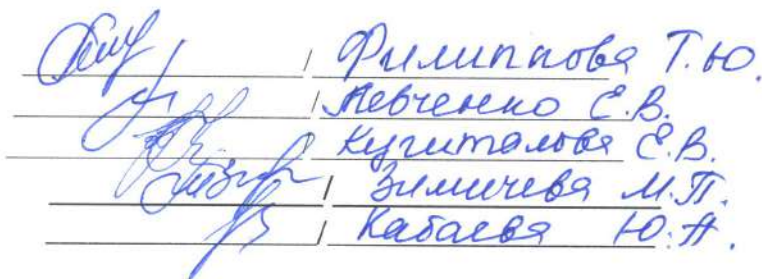 / Филиппова Т.Ю.
/ Левченко Е.В.
/ Кугиталова Е.В.
/ Зимичева М.П.
/ Кабаева Ю.А.